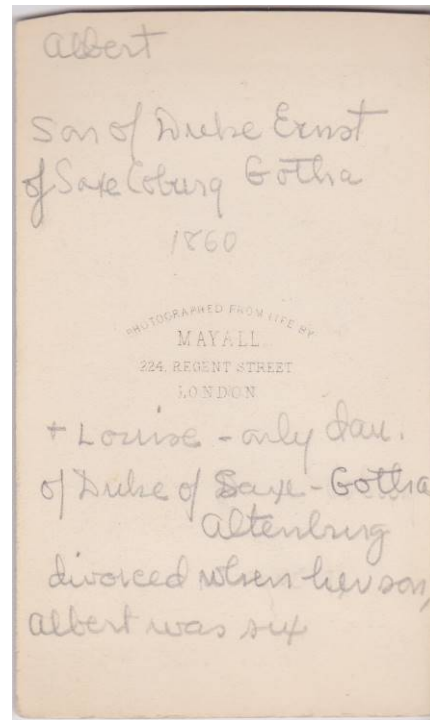 Albert
Son of Duke Ernst
of Saxe Coburg Gotha
1860
PHOTOGRAPHED FROM LIFE BY
MAYALL
224, REGENT STREET
LONDON
+ Louise - only dau.
of Duke of Saxe-Gotha
Altenburg
divorced when her son,
Albert was six